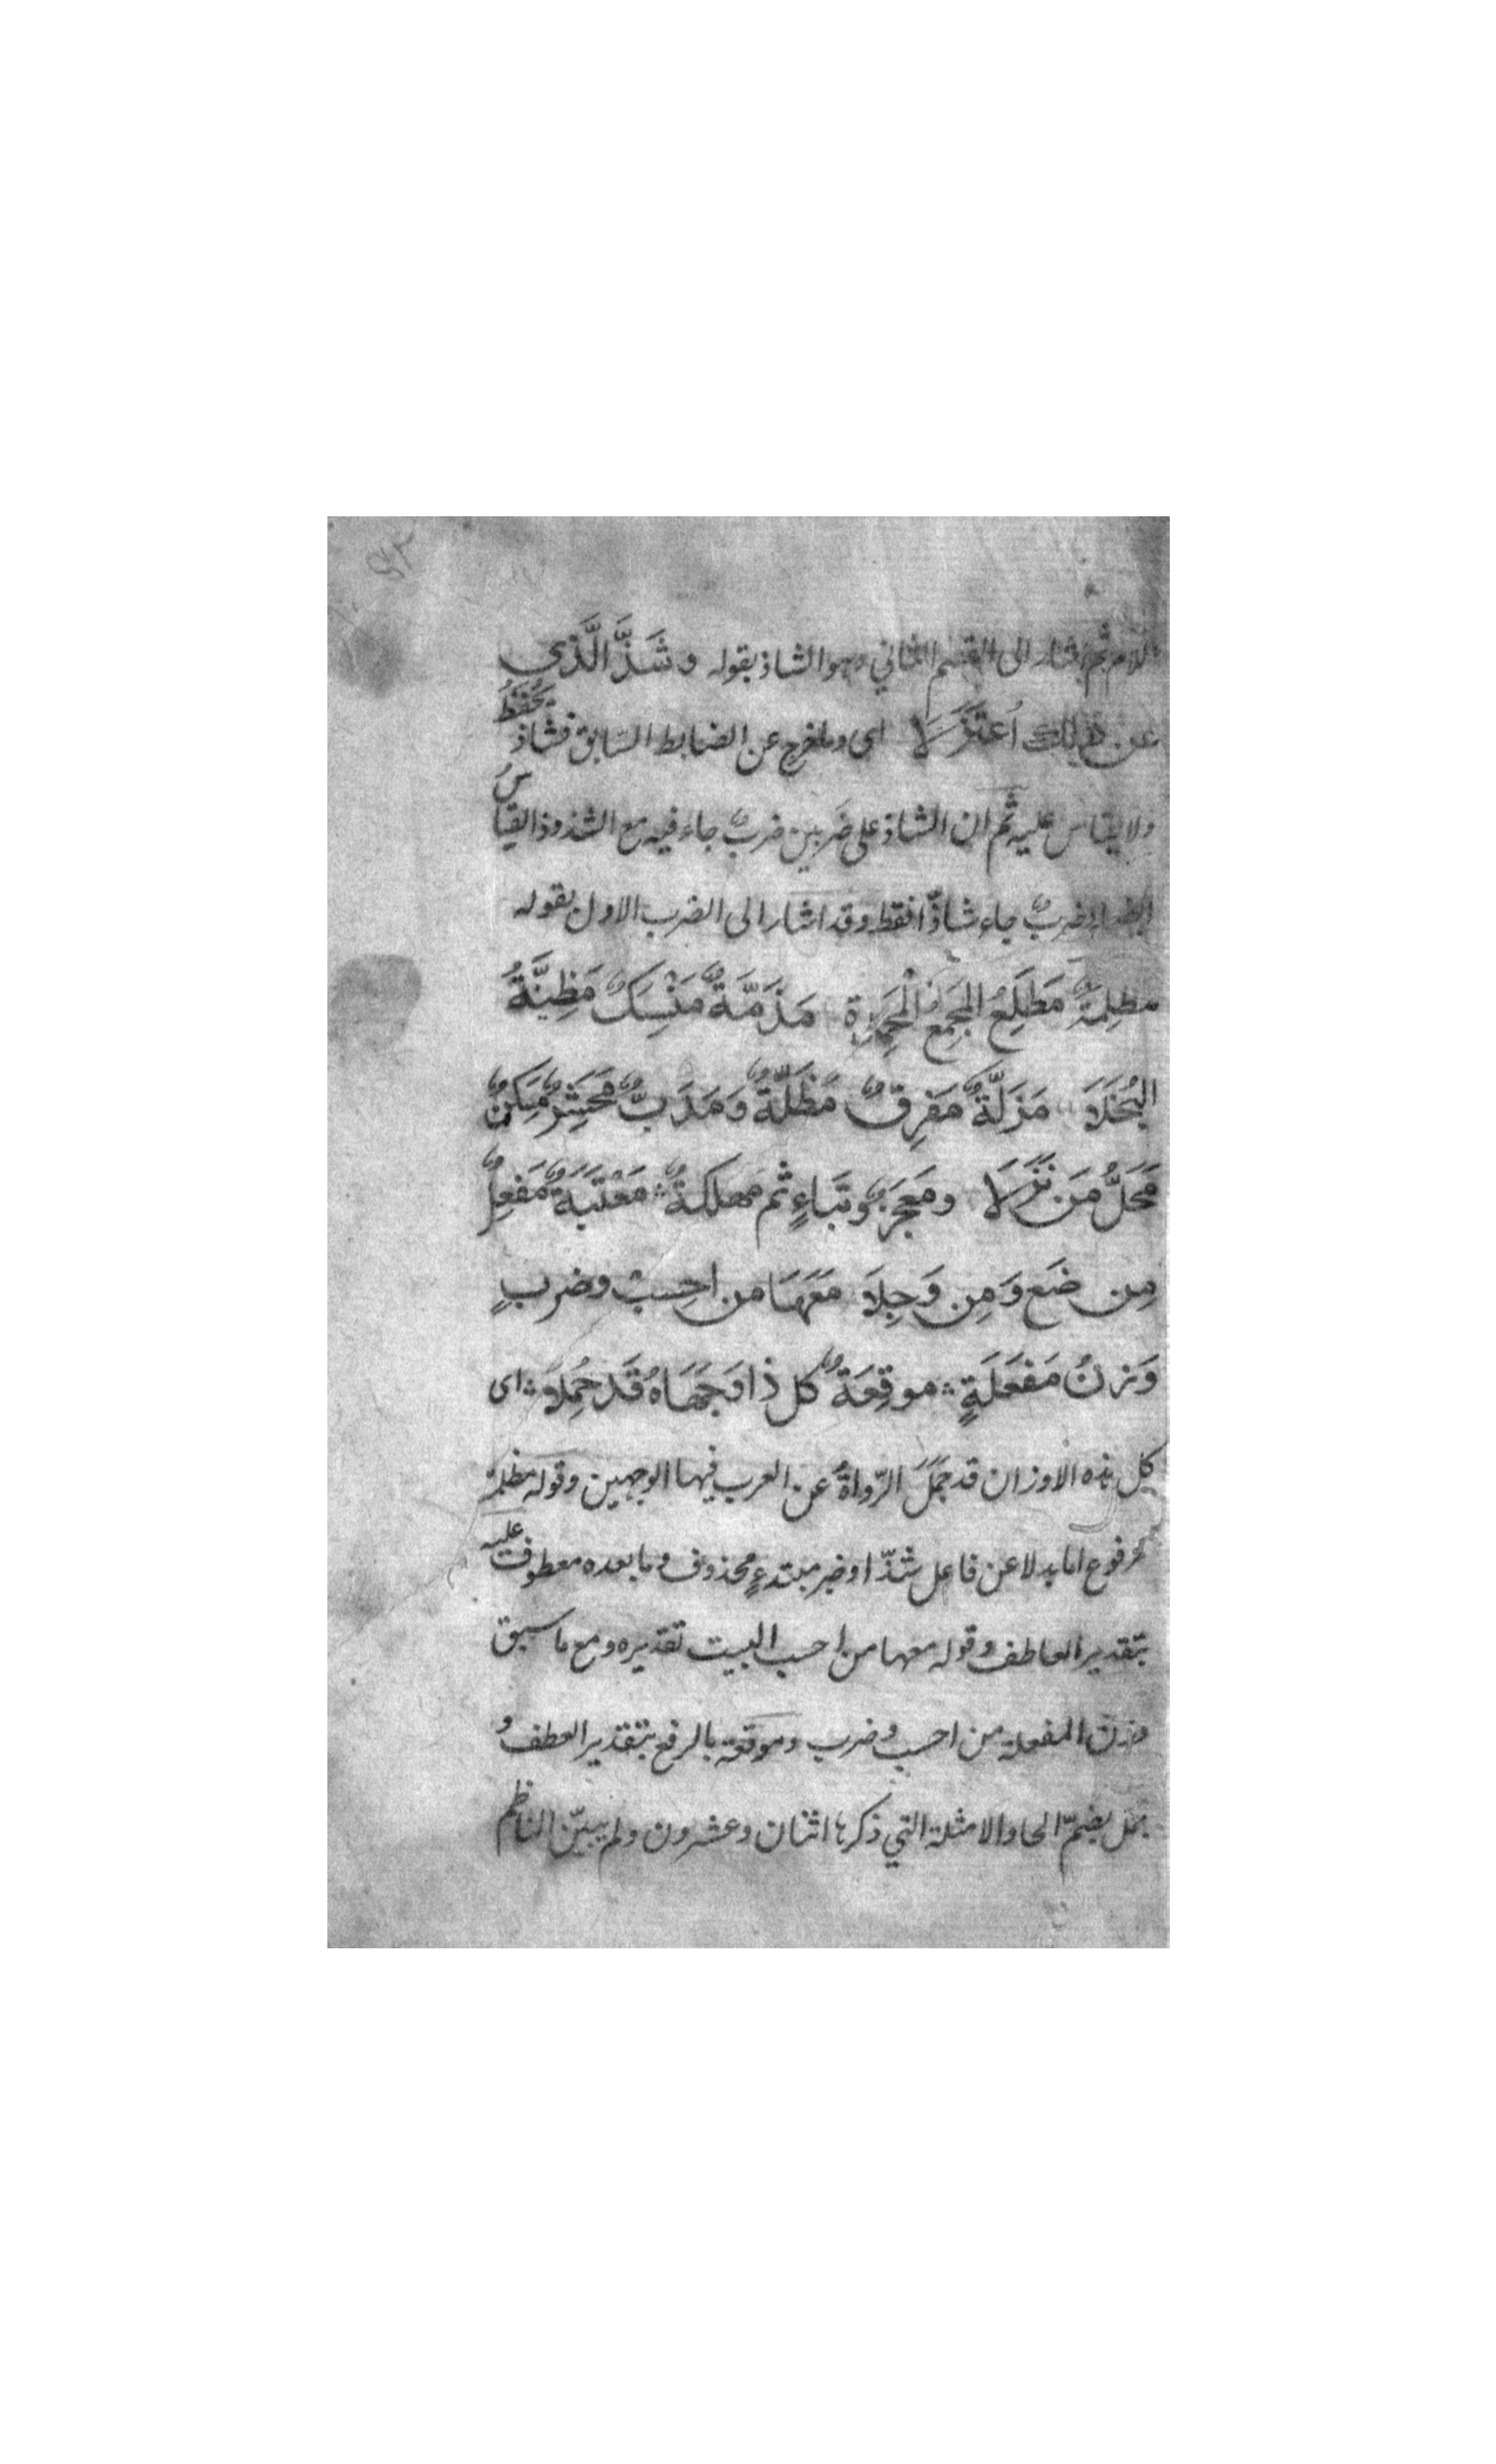 اللام ثم اشار الى القسم الثاني وهو الشاذ بقوله وَشَذَّ الَّذى
عن ذلك اُعتَزَلَا اى وما خرج عن الضابط السّابق فشاذ يُحْفَظُ
ولا يقاس عليه ثم ان الشاذ على ضَربين ضربٌ جاء فيه مع الشذوذ القياسُ
ايضا وضربٌ جاء شاذّا فقط وقد اشار الى الضرب الاول بقوله
مظلِمَةٌ مَطلَِعُ المجمَِعُ المحمَِدة مَذَمَّةٌ مَنْسَِكٌ مَظِنَّةُ
البُخَلَا مَزَلَّةٌ مَفرِقٌ مَضَلَّةٌ وَمَدَبٌّ مَحشَِرٌ مَسكَِنٌ
مَحَلُّ مَن نَزَلَا ومَعجَزٌ وَبتَاءٍ ثم مهلكةٌ مَعْتَبَةٌ مَفعِلٌ
مِن ضَع وَمِن وَجِلَا مَعَهَا من احِسبْ وضربٍ
وَزنُ مَفعَلَةٍ موقِعَةٌ كل ذا وَجهَاهُ قَد حُمِلَا اى
كل هذه الاوزان قد حَمَلَ الرّواةُ عن العرب فيها الوجهين وقوله مظلمة
مرفوع اما بدلا عن فاعل شذّ او خبر مبتدءٍ محذوف وما بعده معطوف عليه
بتقدير العاطف وقوله معها من احسب البيت تقديره ومع ما سبق
وزن المفعلة من احسب وضرب وموقعة بالرفع بتقدير العطف و
حمل بضمّ الحا والامثلة التي ذكرها اثنان وعشرون ولم يبيّن الناظم